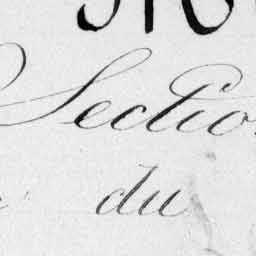 Sectio
du